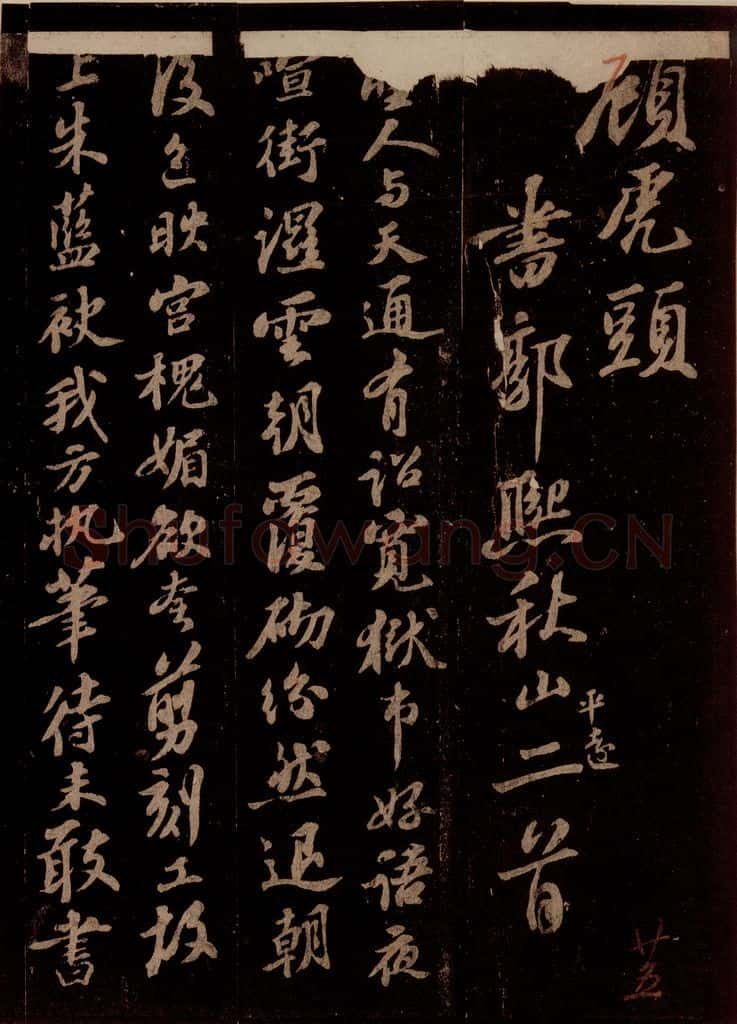 顧虎頭
書郭熙秋山二首
平遠
人与天通有詔寬獄市好語夜
喧街濕雲朝覆砌紛然退朝
後色映宮槐媚欲夸剪刻工故
上朱藍袂我方执筆待未敢書
廿五
Shufawang.CN